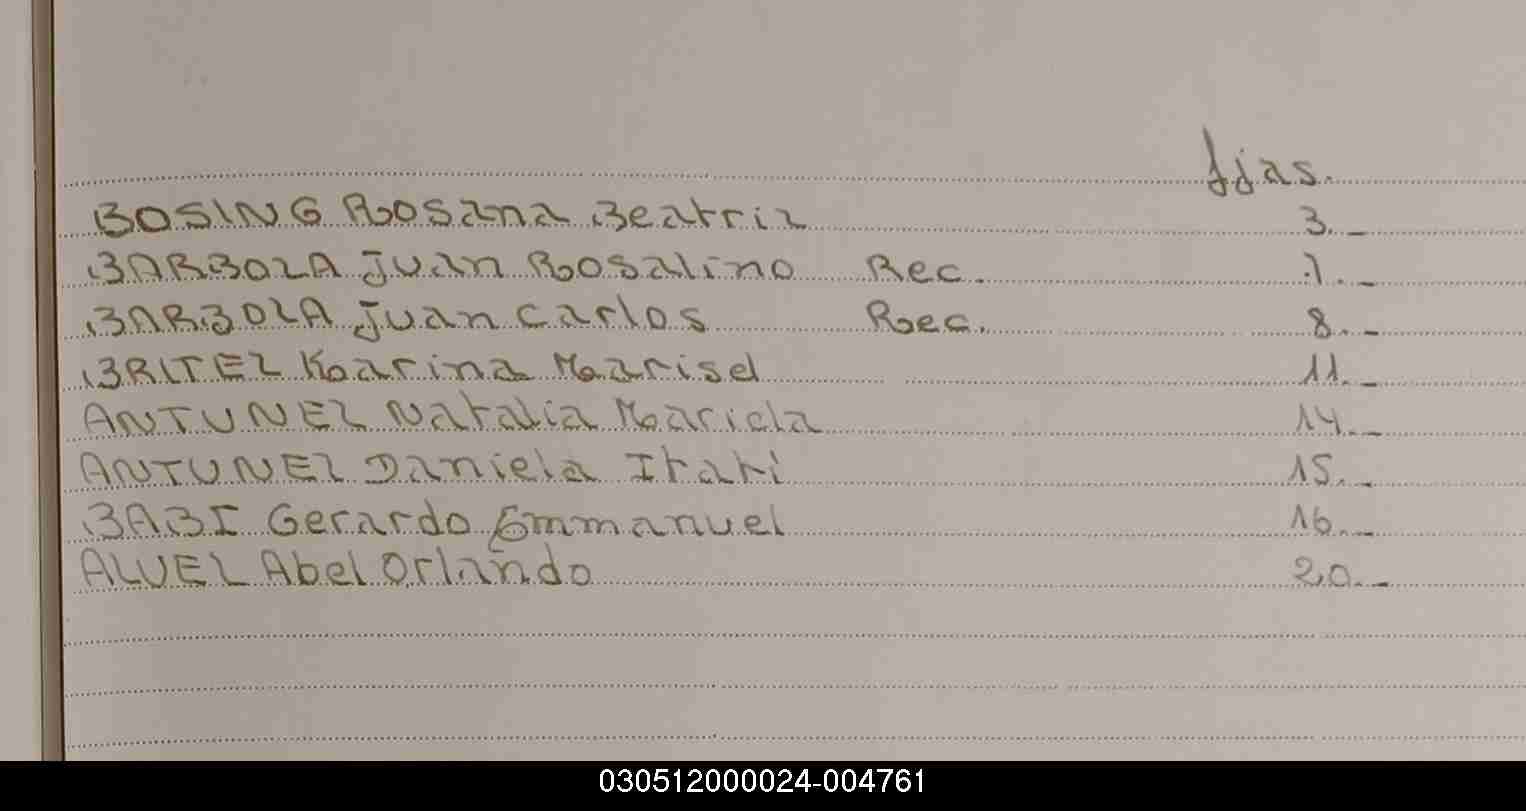 fjas.
BOSING Rosana Beatriz 3._
BARBOZA Juan Rosalino Rec. 7._
BARBOZA Juan Carlos Rec. 8._
BRITEZ Karina Marisel 11._
ANTUNEZ Natalia Mariela 14._
ANTUNEZ Daniela Itati 15._
BABI Gerardo Emmanuel 16._
ALVEZ Abel Orlando 20._
030512000024-004761